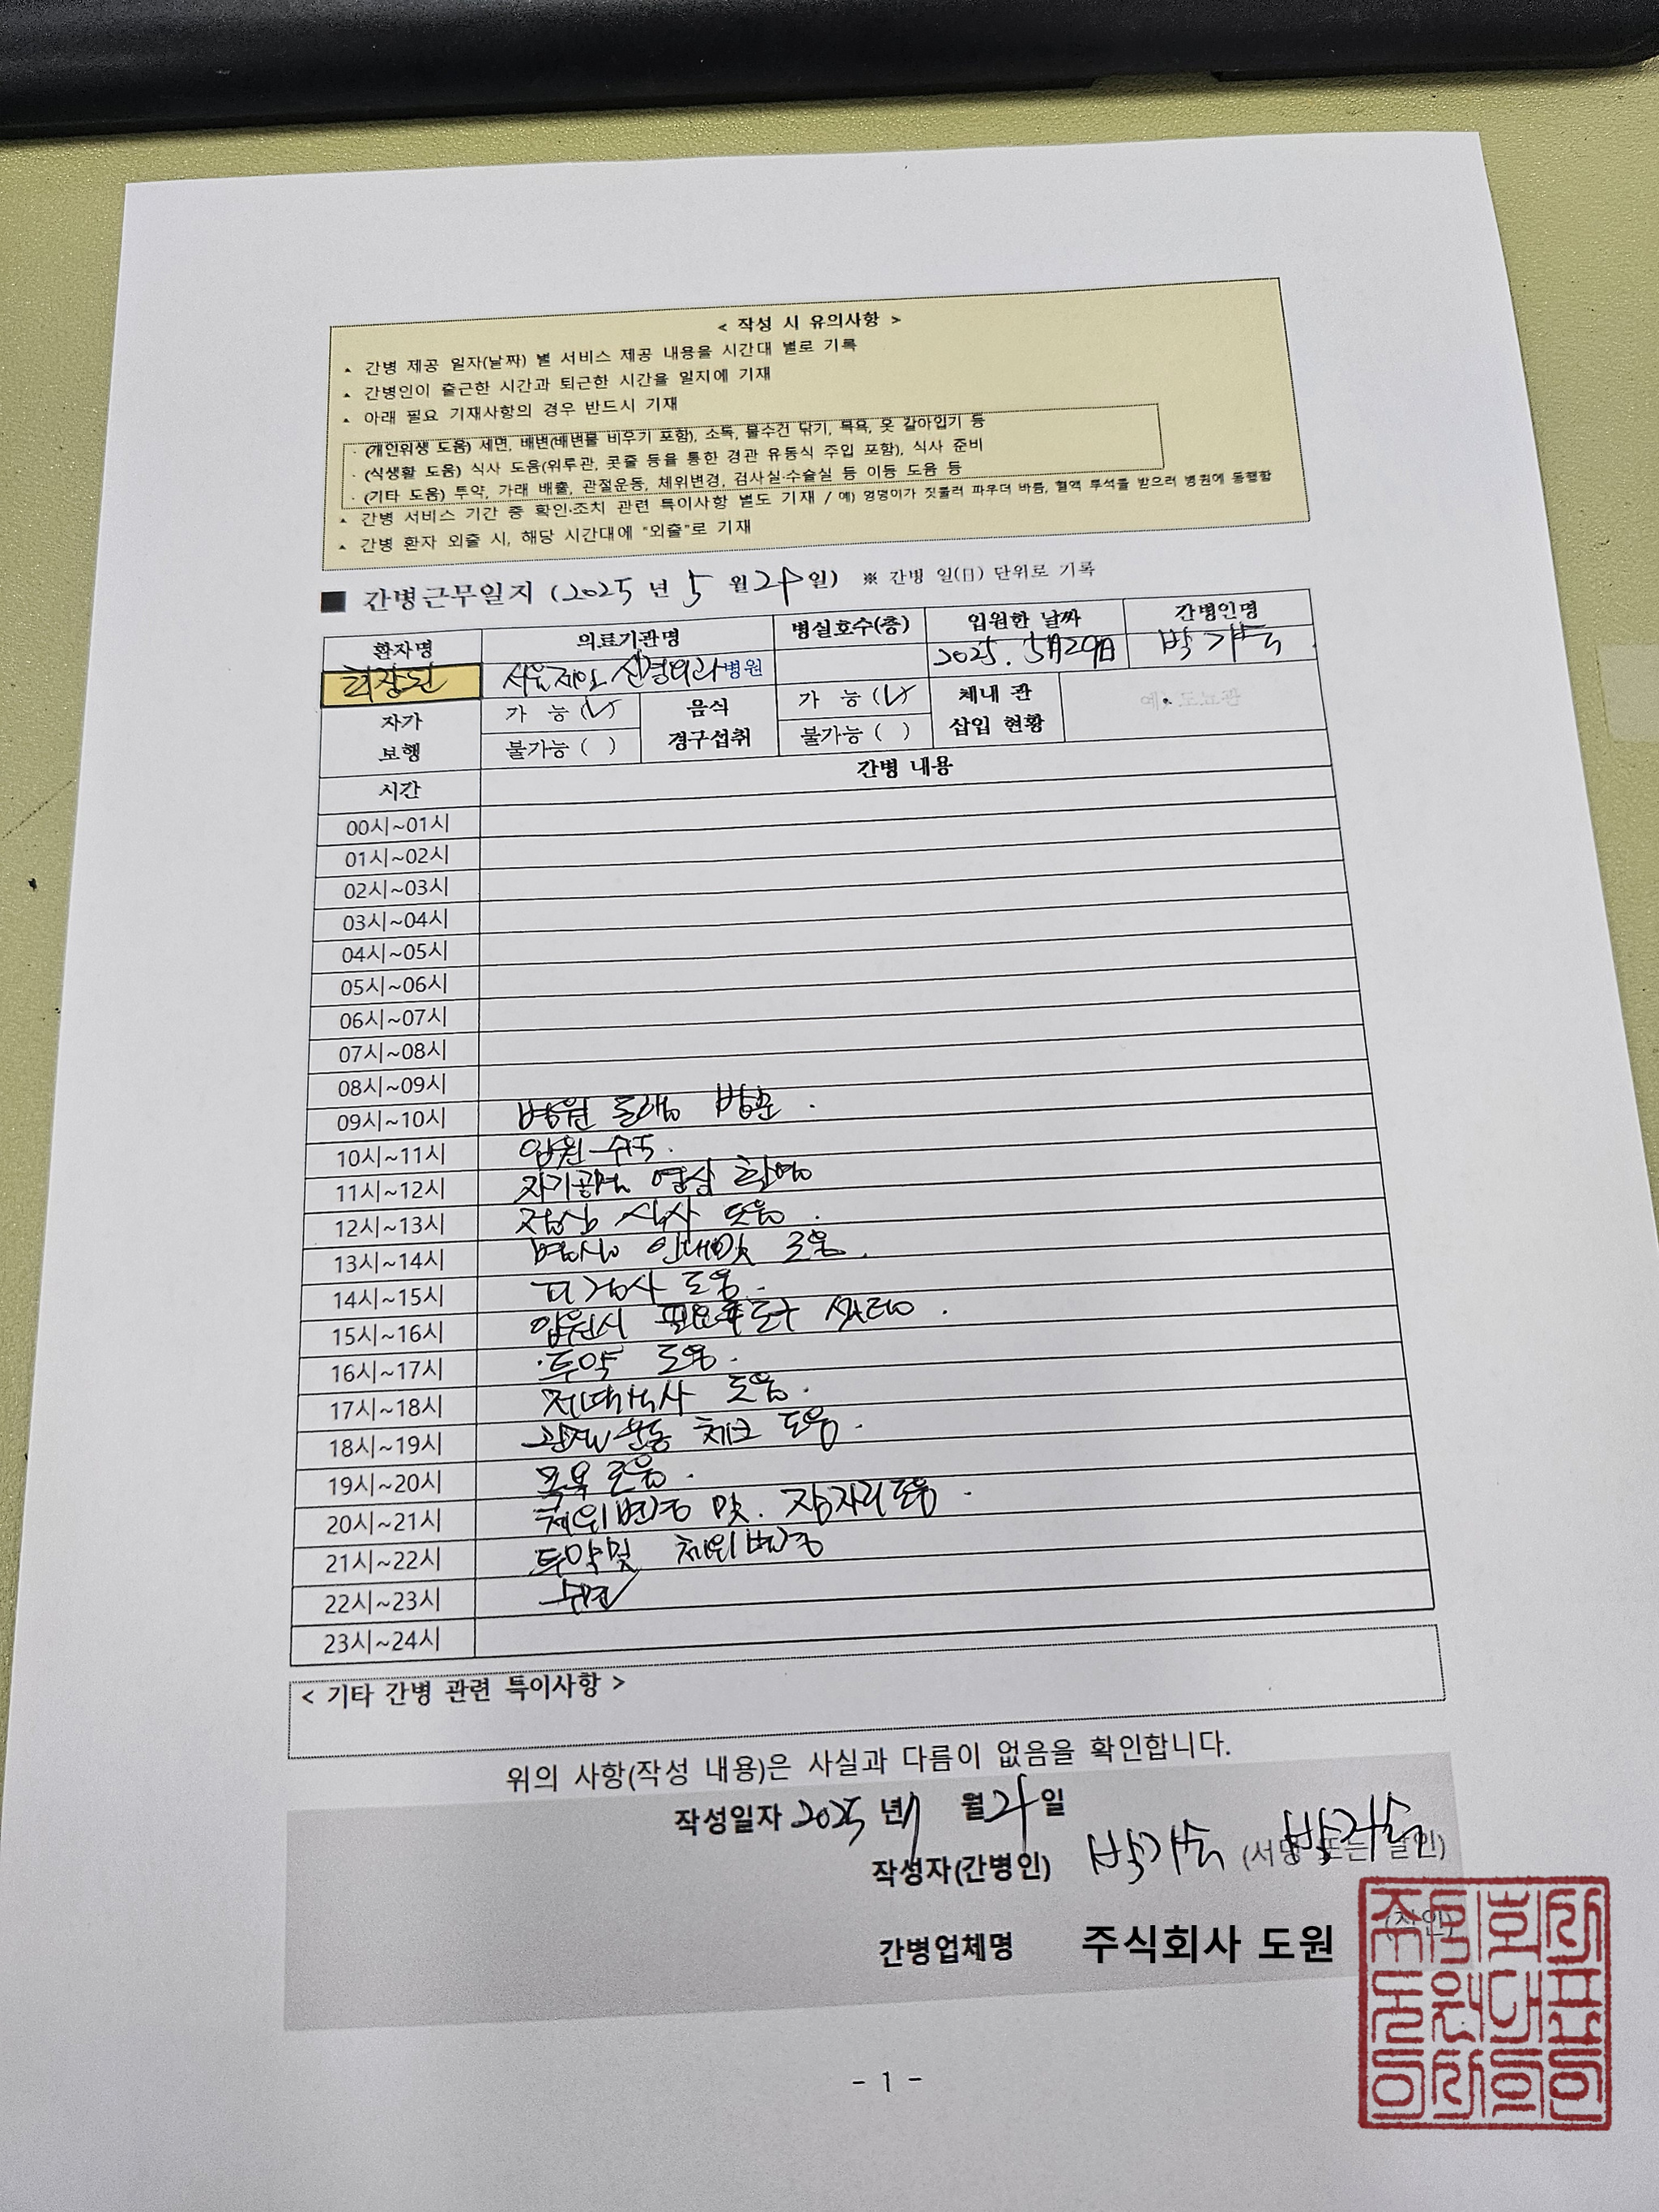 < 작성 시 유의사항 >
▴ 간병 제공 일자(날짜) 별 서비스 제공 내용을 시간대 별로 기록
▴ 간병인이 출근한 시간과 퇴근한 시간을 일지에 기재
▴ 아래 필요 기재사항의 경우 반드시 기재
· (개인위생 도움) 세면, 배변(배변물 비우기 포함), 소독, 물수건 닦기, 목욕, 옷 갈아입기 등
· (식생활 도움) 식사 도움(위루관, 콧줄 등을 통한 경관 유동식 주입 포함), 식사 준비
· (기타 도움) 투약, 가래 배출, 관절운동, 체위변경, 검사실·수술실 등 이동 도움 등
▴ 간병 서비스 기간 중 확인·조치 관련 특이사항 별도 기재 / 예) 엉덩이가 짓물러 파우더 바름, 혈액 투석을 받으러 병원에 동행함
▴ 간병 환자 외출 시, 해당 시간대에 "외출"로 기재
■ 간병근무일지 (2025 년 5 월 29일) ※ 간병 일(日) 단위로 기록
환자명 의료기관명 병실호수(층) 입원한 날짜 간병인명
신경외과병원 2025. 5月29日 박
자가 보행 가 능 (V) 불가능 ( ) 음식 경구섭취 가 능 (V) 불가능 ( ) 체내 관 삽입 현황 예. 도뇨관
시간 간병 내용
00시~01시
01시~02시
02시~03시
03시~04시
04시~05시
05시~06시
06시~07시
07시~08시
08시~09시
09시~10시 병원 동행 방문.
10시~11시 입원 수속.
11시~12시 자기공명 영상 촬영
12시~13시 점심 식사 도움.
13시~14시 병실 안내및 도움.
14시~15시 피검사 도움.
15시~16시 입원시 필요 도구 셋팅.
16시~17시 투약 도움.
17시~18시 저녁식사 도움.
18시~19시 관절 운동 체크 도움.
19시~20시 목욕 도움.
20시~21시 체위변경 및. 잠자리도움.
21시~22시 투약및 체위변경
22시~23시 수면
23시~24시
< 기타 간병 관련 특이사항 >
위의 사항(작성 내용)은 사실과 다름이 없음을 확인합니다.
작성일자 2025 년 월 29 일
작성자(간병인) 박 (서명 또는 날인)
간병업체명 주식회사 도원 (직인)
주식회사도원대표이사의인
- 1 -